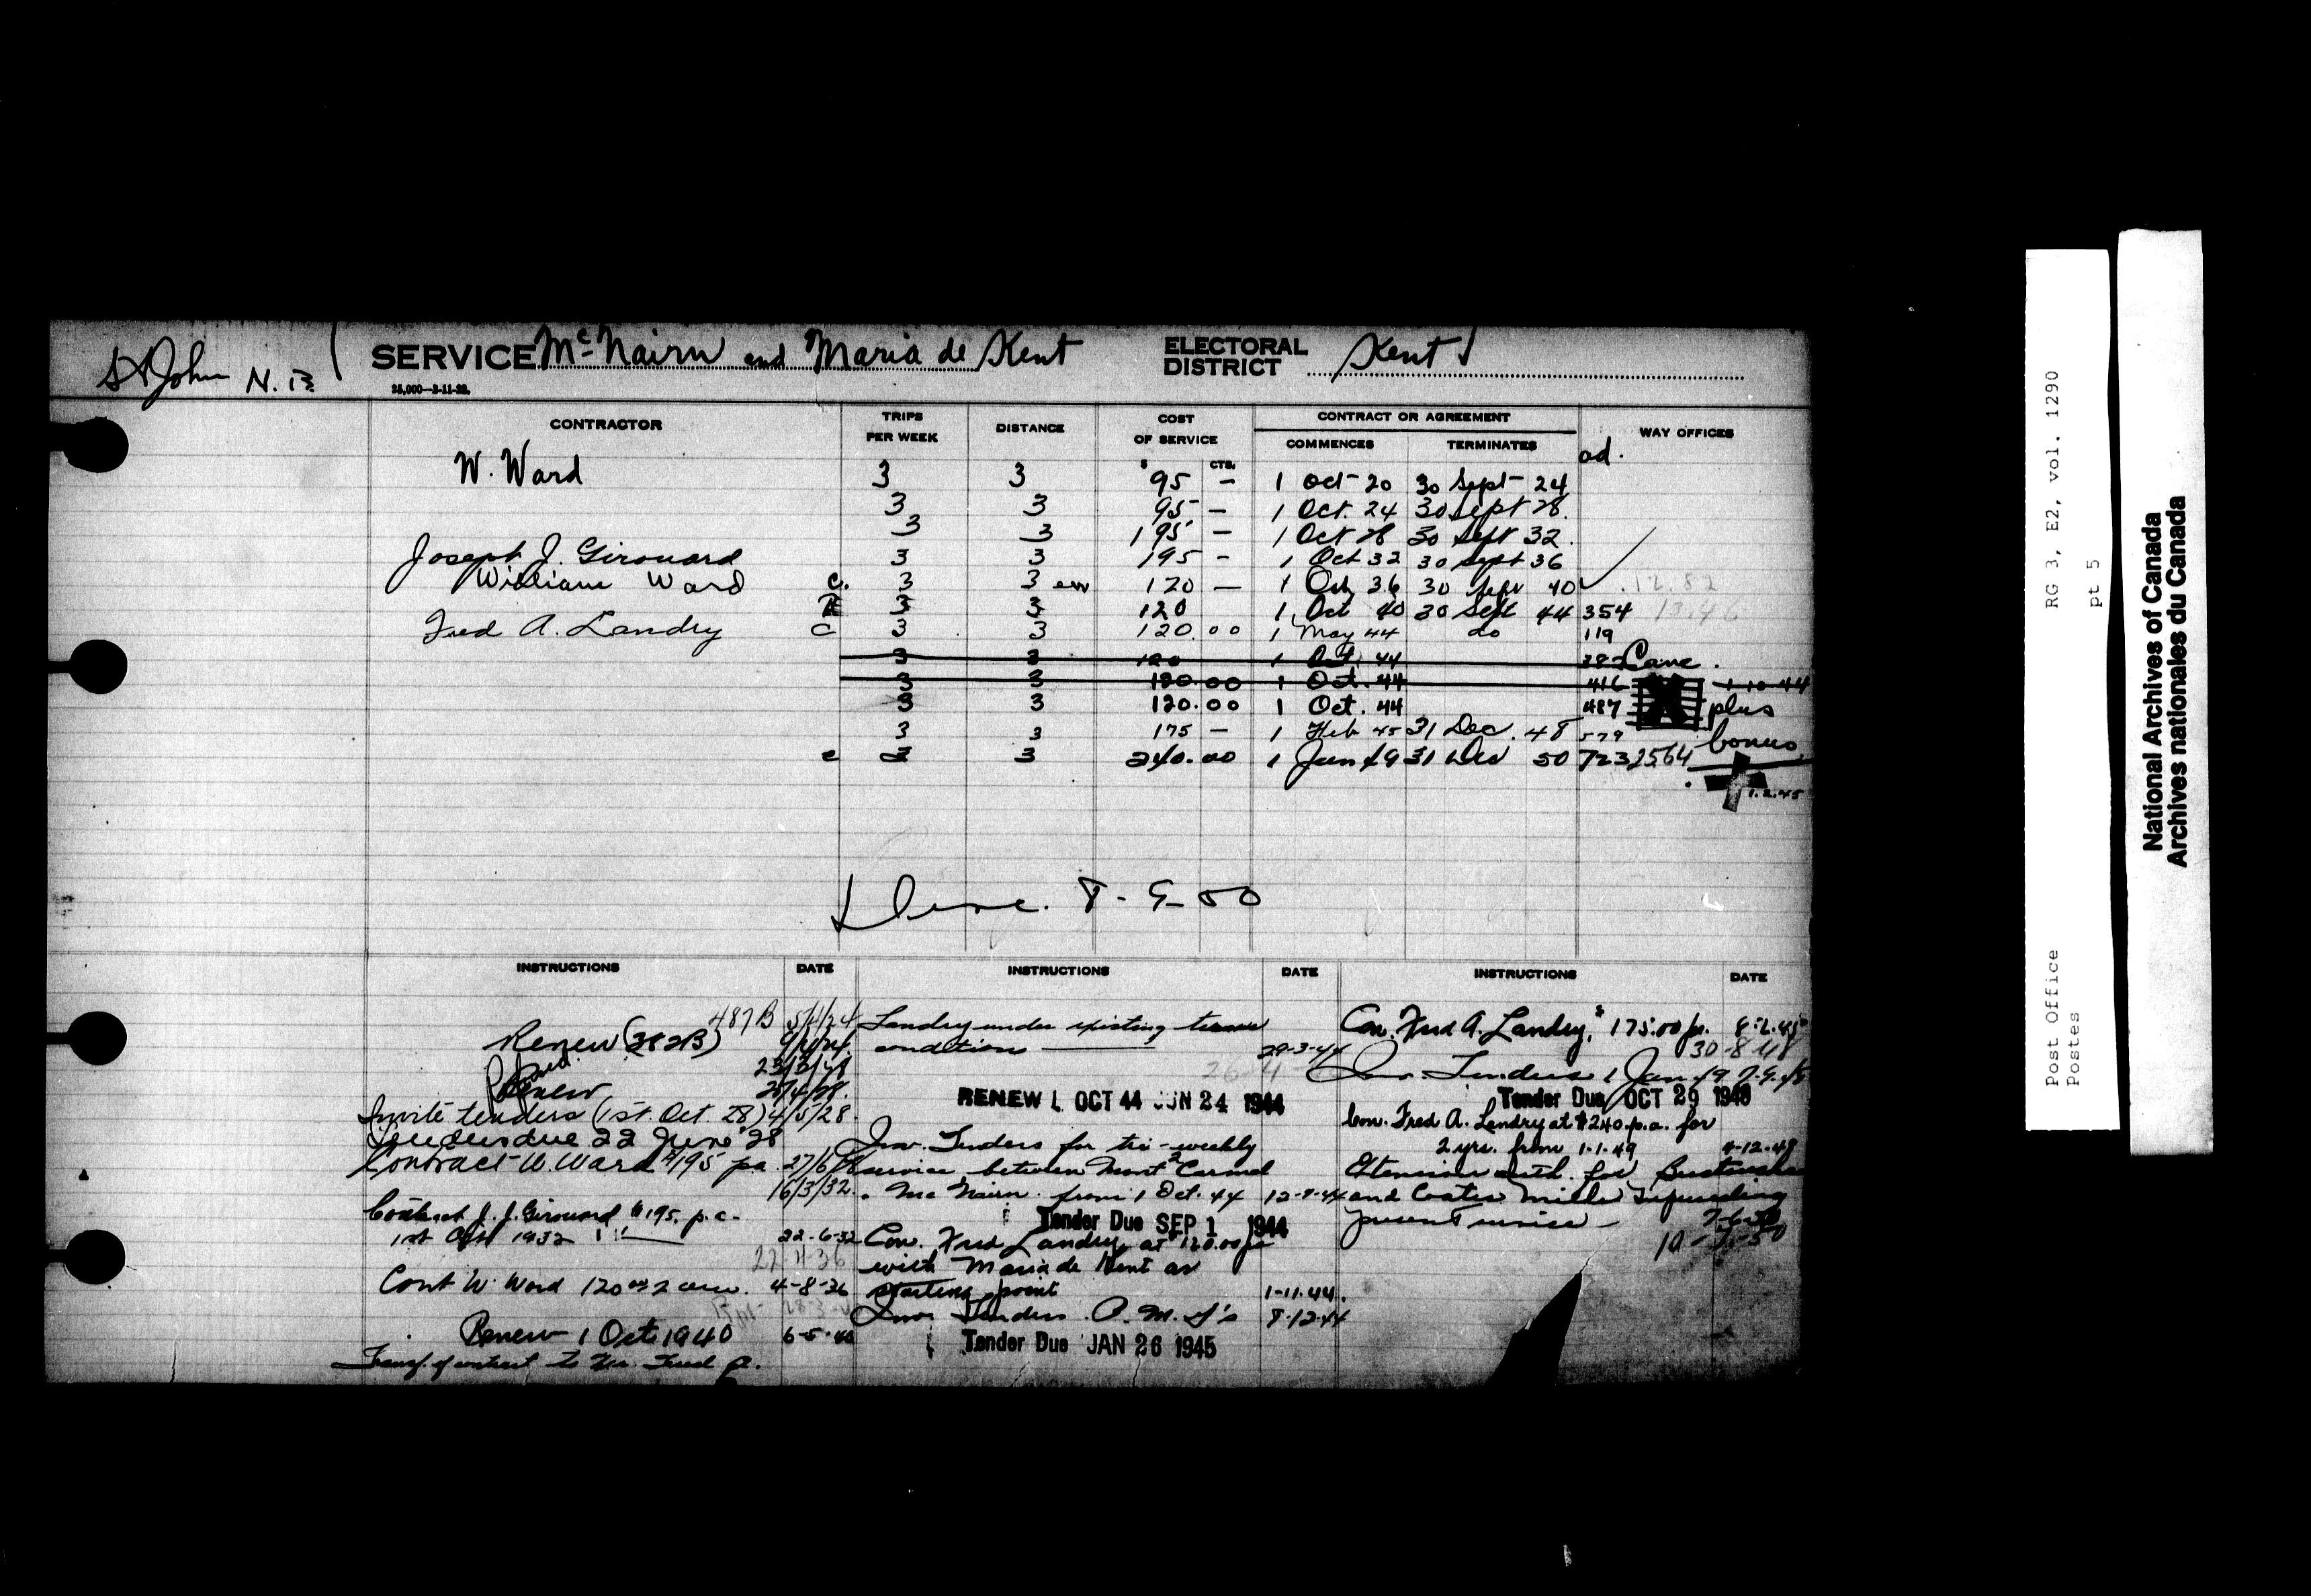 St John N.B.
SERVICE McNairn and Maria de Kent
ELECTORAL DISTRICT Kent
25,000—3-11-22.
CONTRACTOR TRIPS PER WEEK DISTANCE COST OF SERVICE CONTRACT OR AGREEMENT WAY OFFICES
COMMENCES TERMINATES
$ CTS. ad.
W. Ward 3 3 95 — 1 Oct 20 30 Sept 24
3 3 95 — 1 Oct. 24 30 Sept 28.
3 3 195 — 1 Oct 28 30 Sept 32.
Joseph J. Girouard 3 3 195 — 1 Oct 32 30 Sept 36
William Ward c. 3 3 120 — 1 Oct 36 30 Sept 40 12.82
R 3 3 120 1 Oct 40 30 Sept 44 354
Fred A. Landry C 3 3 120.00 1 May 44 do 119
3 3 120 1 Oct. 44 382 Canc.
3 3 120.00 1 Oct. 44 416 1-10-44
3 3 120.00 1 Oct. 44 487 plus
3 3 175 — 1 Feb 45 31 Dec. 48 579 bonus
c 3 3 240.00 1 Jan 49 31 Dec 50 723 2564
1.2.45
Disc. 8-9-50
INSTRUCTIONS DATE INSTRUCTIONS DATE INSTRUCTIONS DATE
487B
Renew (382B)
Renew
Invite tenders (1st. Oct. 28) 4/5/28.
Tenders due 22 June 28
Contract W. Ward $195 pa. 27/6/28
16/3/32.
Contract J. J. Girouard $195. p.a.
1st Oct 1932 22-6-32
22 4 36
Cont W. Ward 120 4-8-36
Renew 1 Oct 1940 6-5-40
Transf. of contract to Mr. Fred A.
Landry under existing terms
conditions 29-3-44
RENEW 1 OCT 44 JUN 24 1944
Inv. Tenders for tri-weekly
service between Mont Carmel
McNairn from 1 Oct. 44
Tender Due SEP 1 1944
Con. Fred Landry at 120.00
with Maria de Kent as
starting point 1-11-44.
Inv. Tenders P.M.G's 8-12-44
Tender Due JAN 26 1945
Con. Fred A. Landry, $175.00 p.a. 8-2-45
30-8-48
Inv. Tenders 1 Jan 49
Tender Due OCT 29 1948
Con. Fred A. Landry at $240 p.a. for
2 yrs. from 1-1-49
Extension auth. for
and Coates Mills superseding
present service —
Post Office RG 3, E2, vol. 1290
Postes pt 5
National Archives of Canada
Archives nationales du Canada